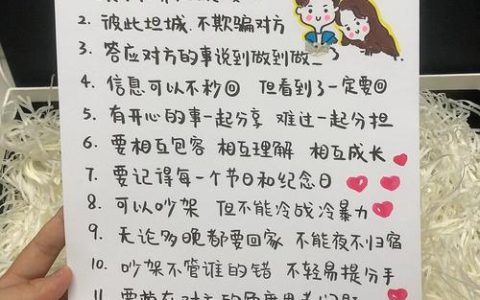 2. 彼此坦城 不欺骗对方
3. 答应对方的事说到做到做
4. 信息可以不秒回 但看到了一定要回
5. 有开心的事一起分享 难过一起分担
6. 要相互包容 相互理解 相互成长
7. 要记得每一个节日和纪念日
8. 可以吵架 但不能冷战冷暴力
9. 无论多晚都要回家 不能夜不归宿
10. 吵架不管谁的错 不轻易提分手
11.